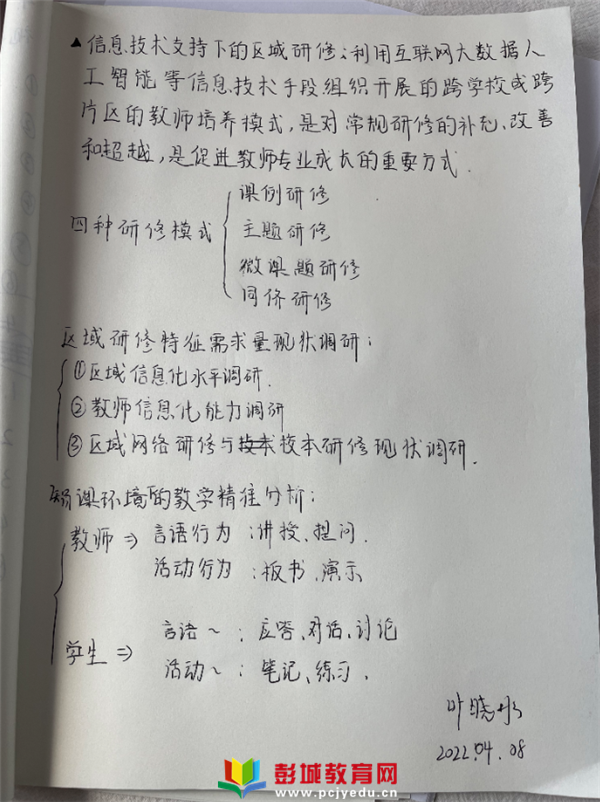 ▲信息技术支持下的区域研修:利用互联网大数据人
工智能等信息技术手段组织开展的跨学校或跨
片区的教师培养模式,是对常规研修的补充、改善
和超越,是促进教师专业成长的重要方式.
四种研修模式
课例研修
主题研修
微课题研修
同侪研修
区域研修特征需求量现状调研:
①区域信息化水平调研.
②教师信息化能力调研
③区域网络研修与校本研修现状调研.
课环境的教学精准分析:
教师⇒ 言语行为:讲授、提问.
活动行为:板书、演示
学生⇒ 言语~:应答、对话、讨论
活动~:笔记、练习.
叶晓
2022.04.08
彭城教育网
www.pcjyedu.cn